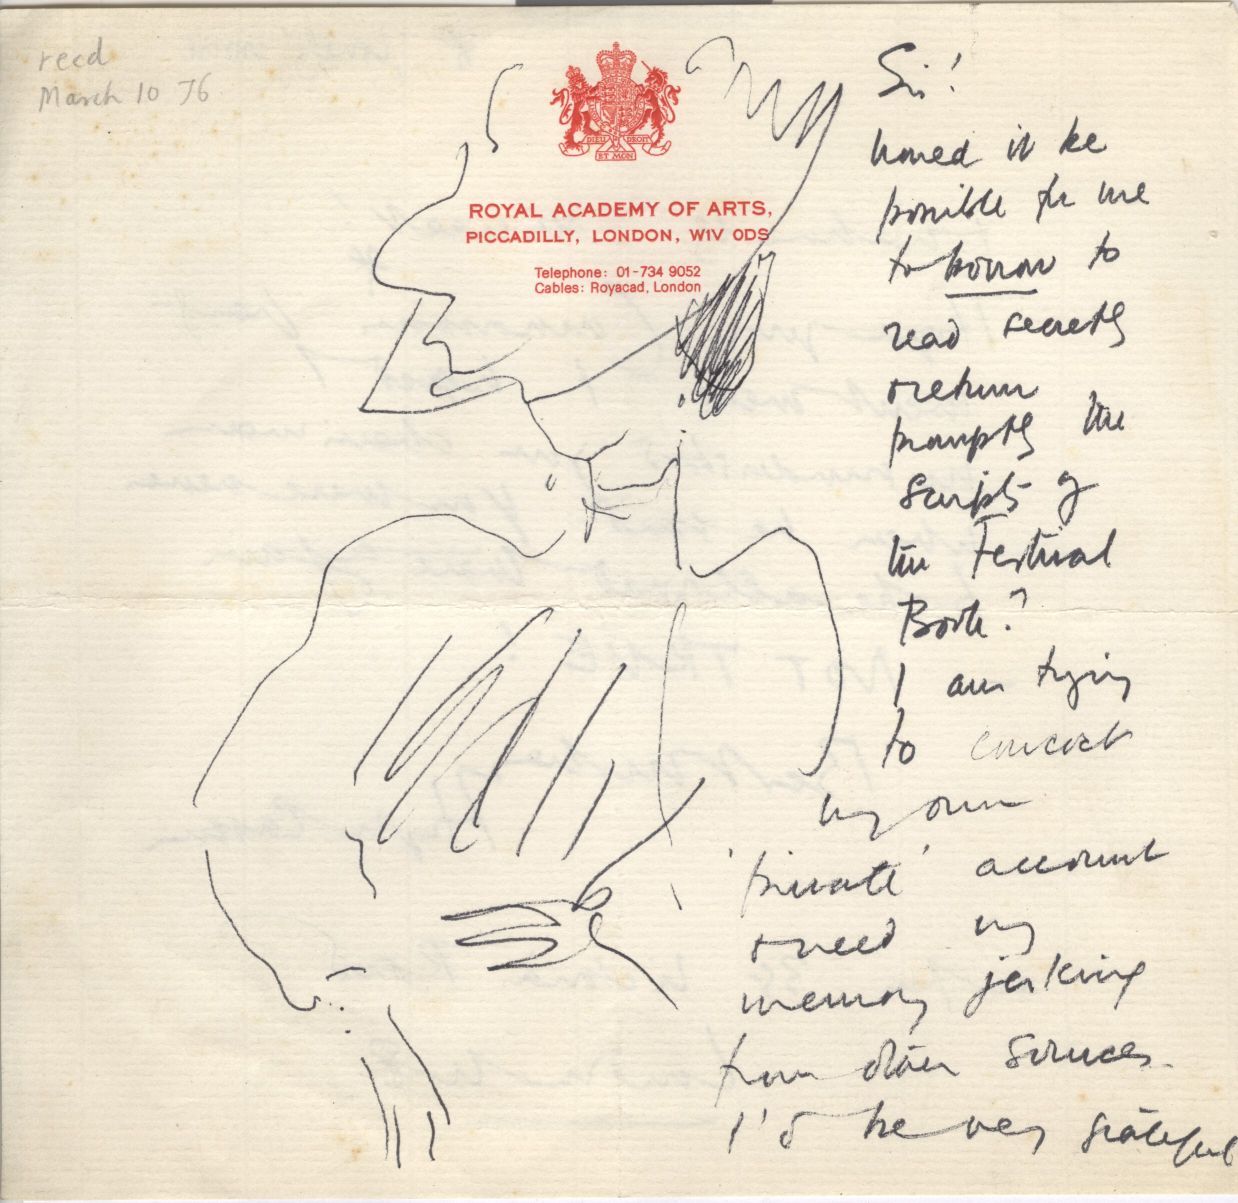 recd
March 10 76
DIEU ET MON DROIT
ROYAL ACADEMY OF ARTS,
PICCADILLY, LONDON, W1V 0DS
Telephone: 01-734 9052
Cables: Royacad, London
Sir!
would it be
possible for me
to borrow to
read secretly
& return
promptly the
scripts of
the Festival
Book?
I am trying
to concoct
my own
'private' account
& need my
memory jerking
from other sources.
I'd be very grateful